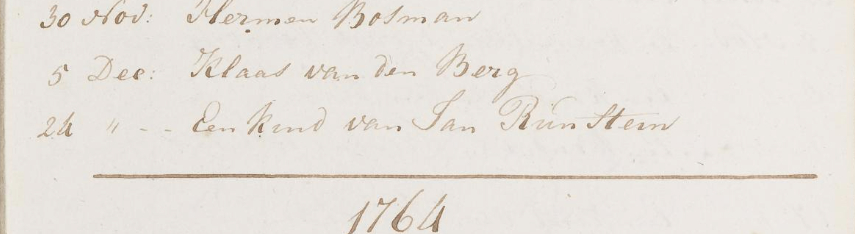 30 Nov: Hermen Bosman
5 Dec: Klaas van den Berg
24 " - - Een kind van Jan Rúnstein
1764